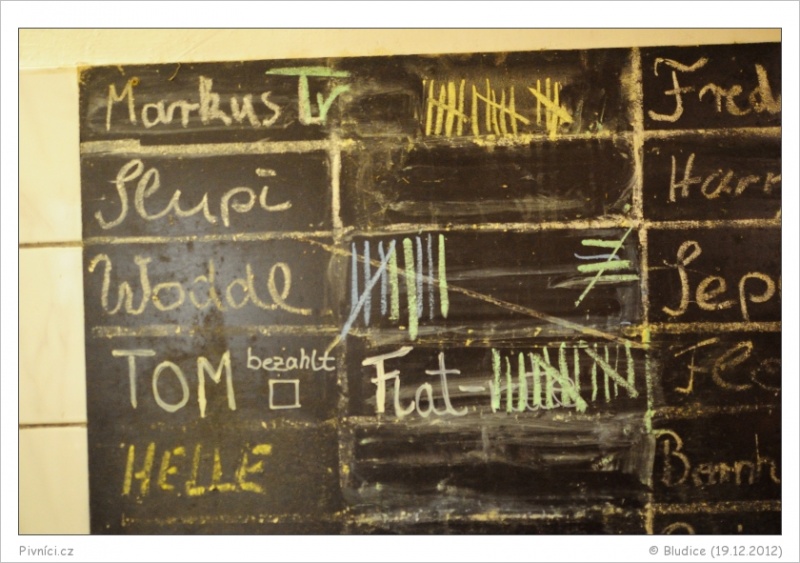 Markus Tr Fred
Slupi Harr
Woddl Sep
TOM bezahlt Flat- Flo
HELLE Barnh
Pivníci.cz © Bludice (19.12.2012)